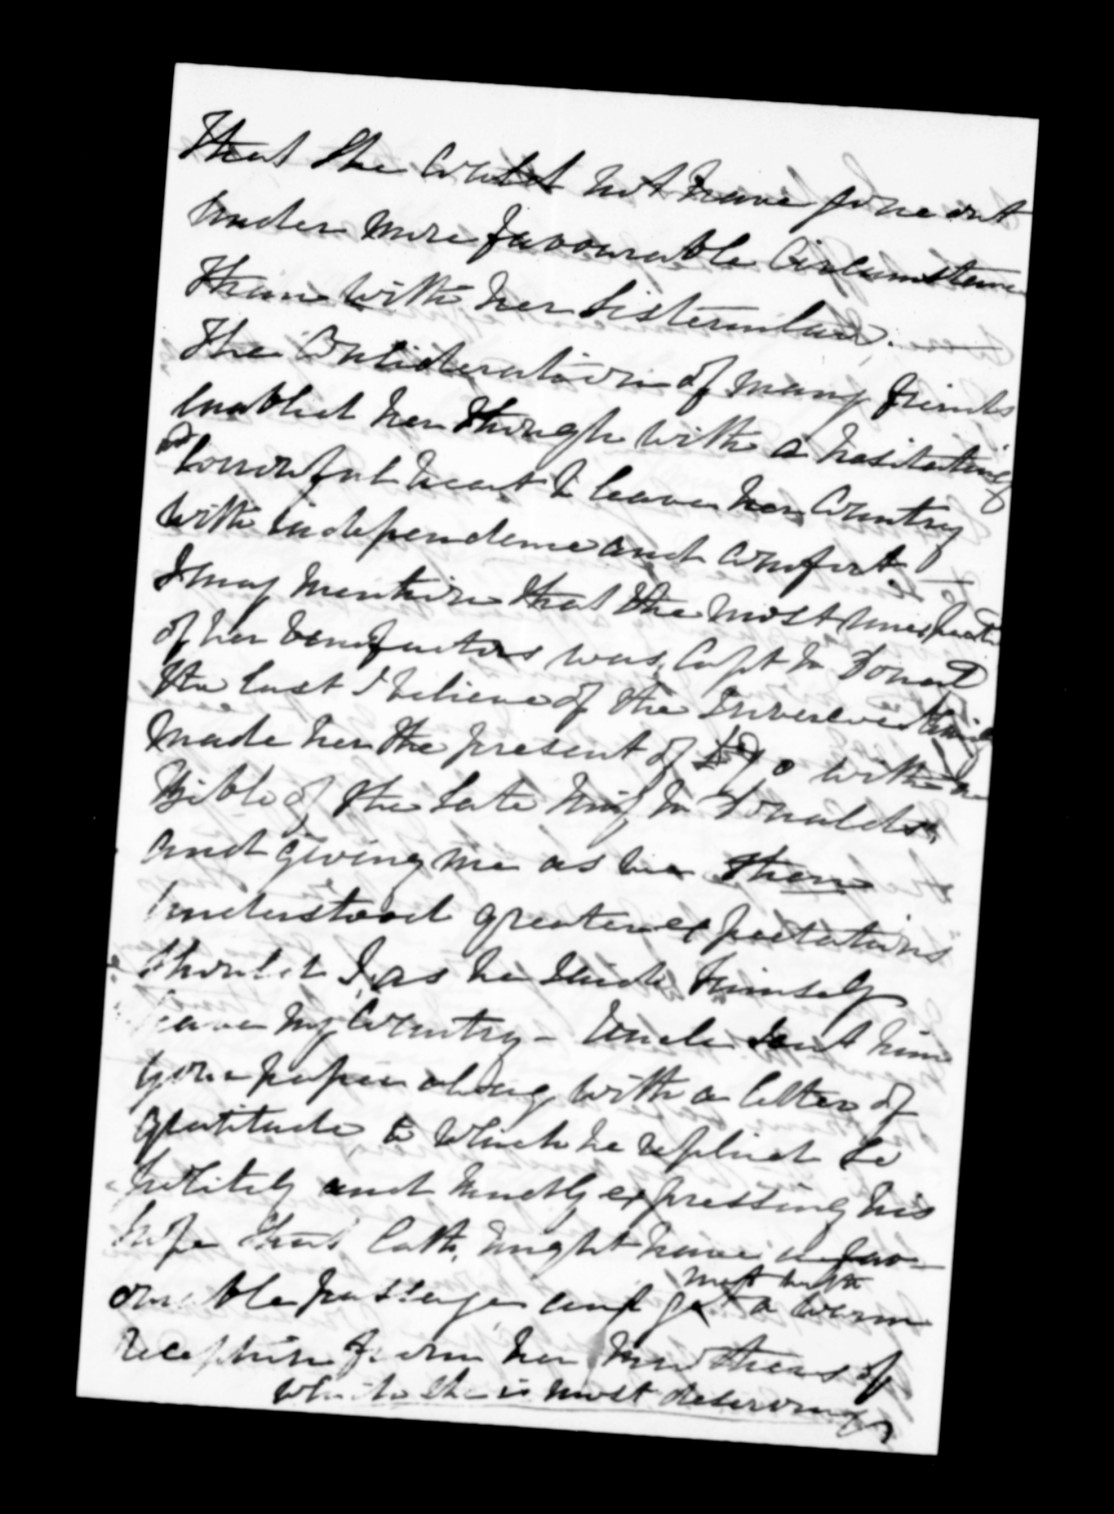 that she could not have gone out
under more favourable Circumstances
than with her Sisterinlaw.
The Consideration of many friends
enabled her though with a hesitating
and sorrowful heart to leave her Country
with independence and comfort —
I may mention that the most unexpected
of her benefactors was Capt McDonald
the last I believe of the
made her the present of with the
Bible of the late McDonald
and giving me as he then
understood greater expectations
should I, as he said himself
leave my Country - Uncle sent him
your paper along with a letter of
gratitude to which he replied so
politely and kindly expressing his
hope that Cath. might have a fav-
ourable passage and meet with a warm
reception from her Brothers of
which she is most deserving